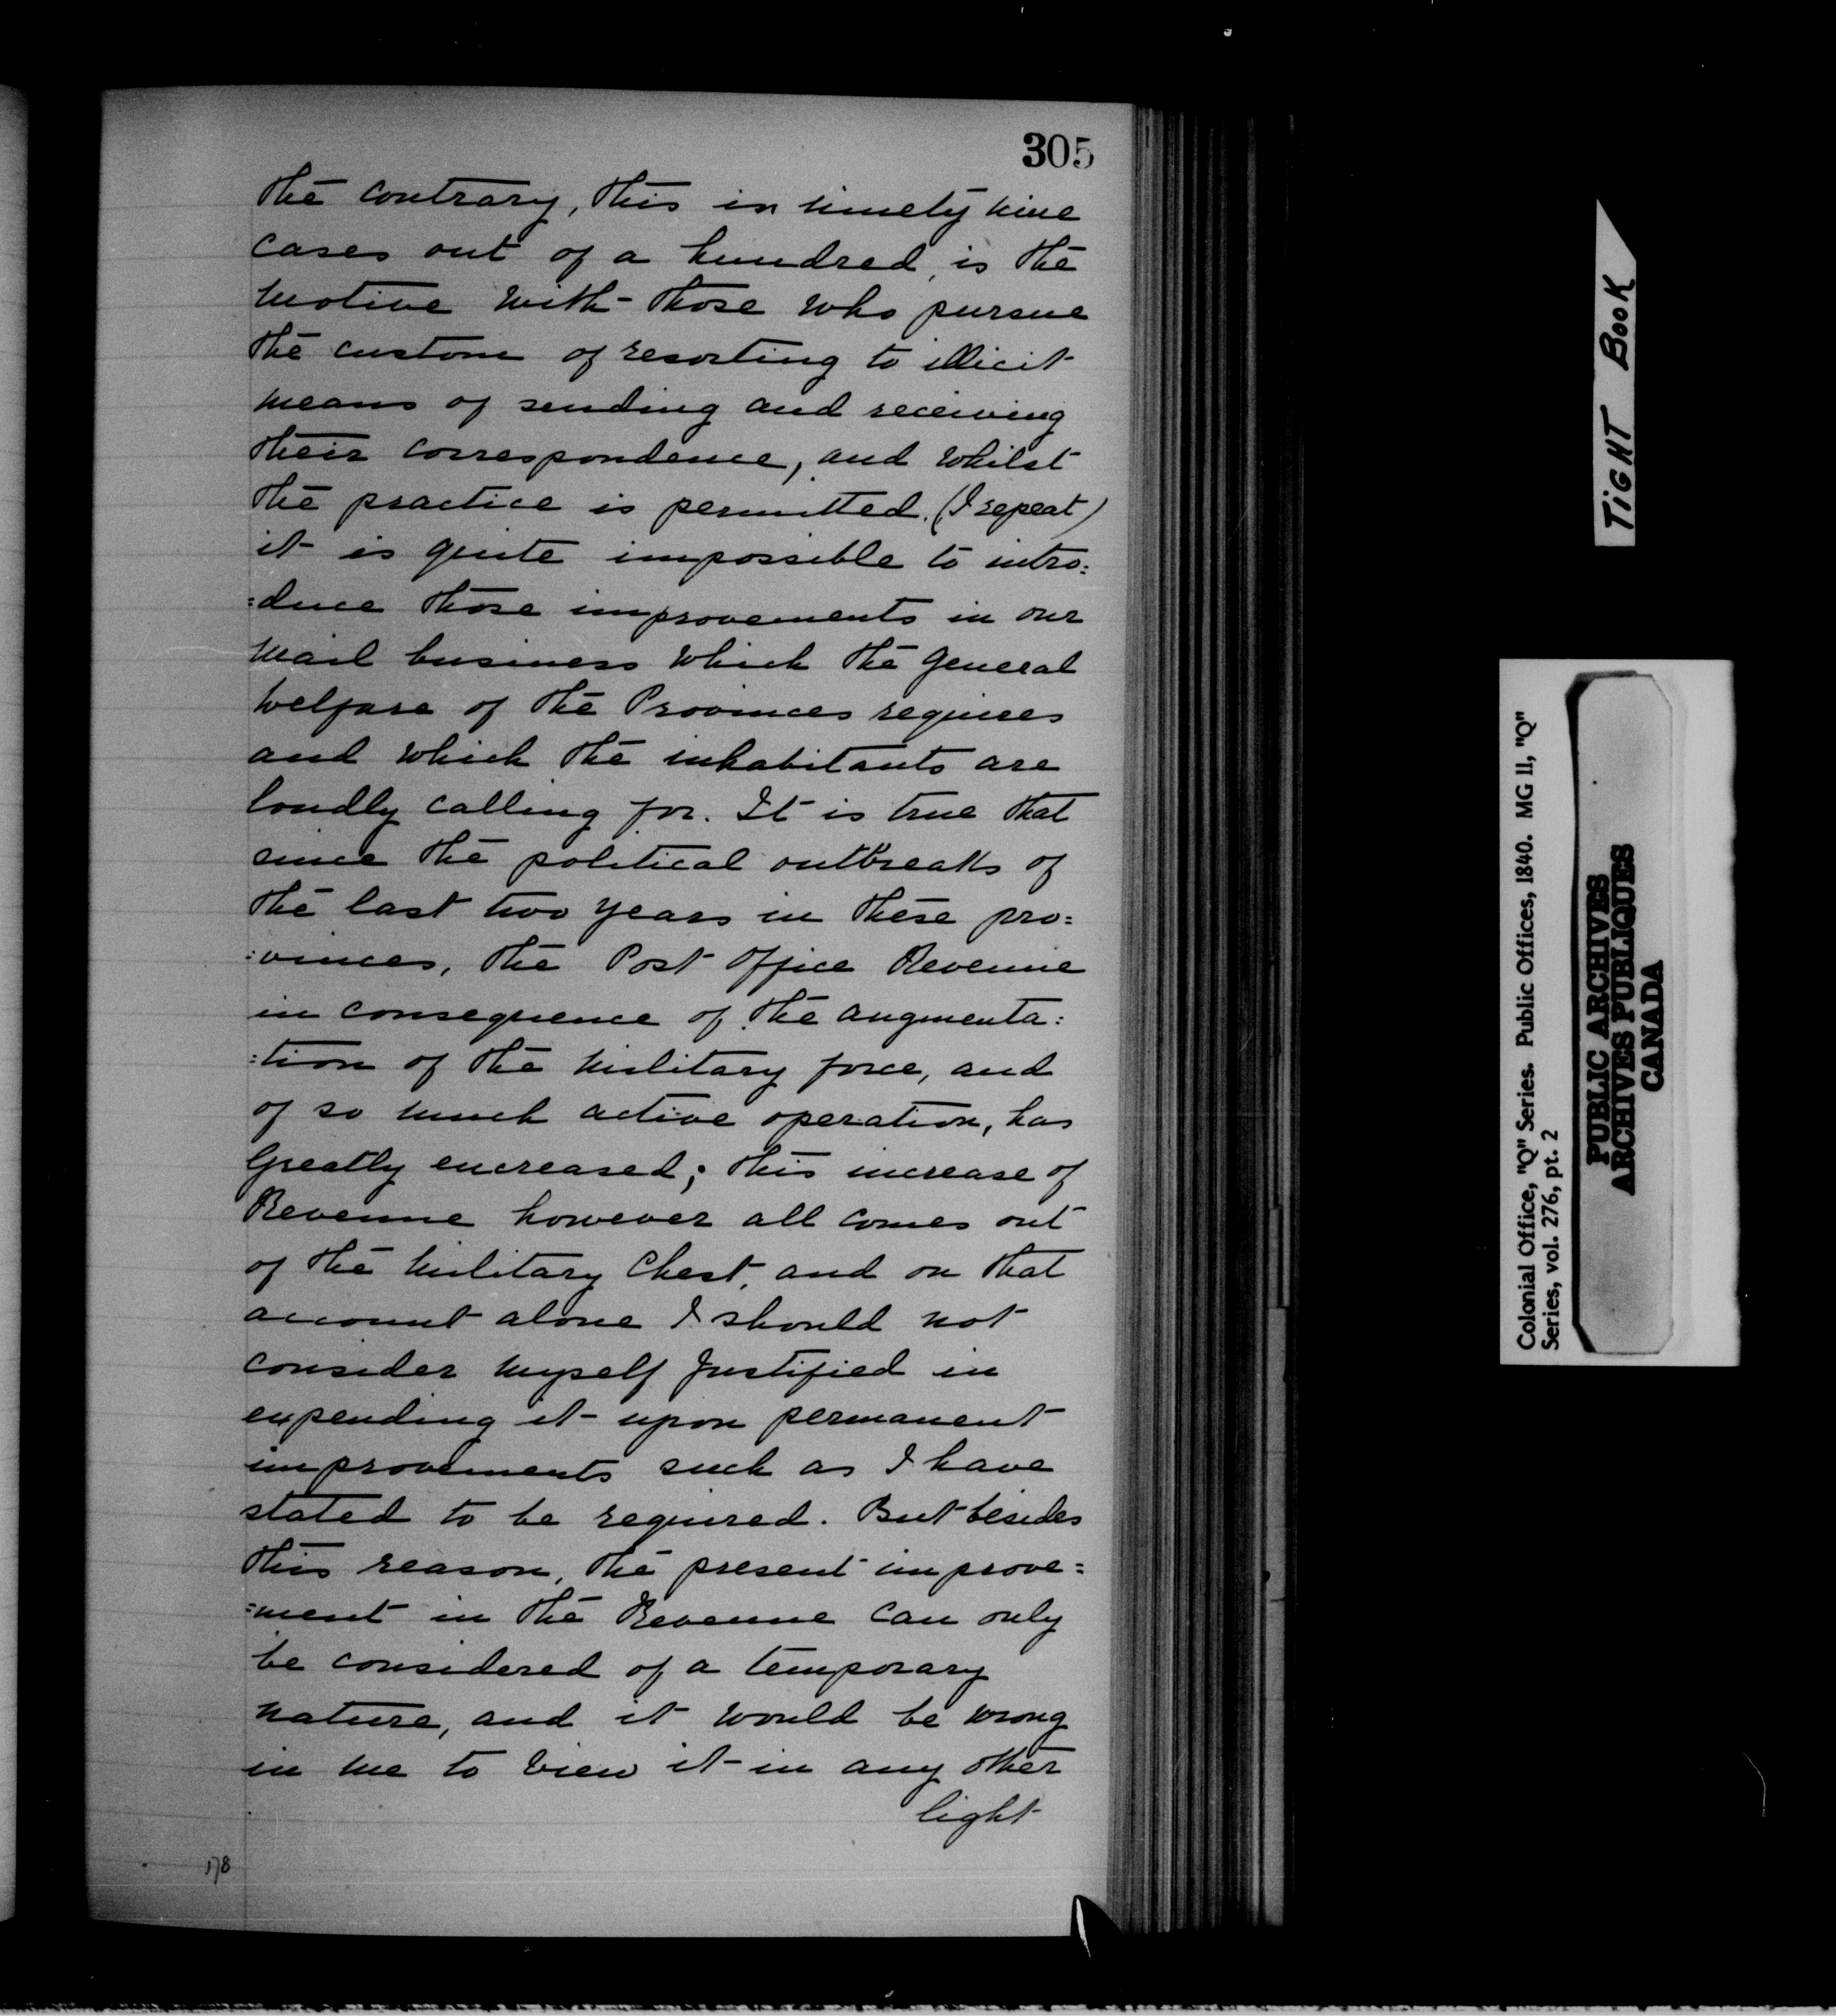 305
the contrary, this in ninety nine
cases out of a hundred, is the
motive with those who pursue
the custom of resorting to illicit
means of sending and receiving
their correspondence, and whilst
the practice is permitted. (I repeat)
it is quite impossible to intro:
:duce those improvements in our
mail business which the general
welfare of the Provinces requires
and which the inhabitants are
loudly calling for. It is true that
since the political outbreaks of
the last two years in these pro:
:vinces, the Post Office Revenue
in consequence of the augmenta:
:tion of the military force, and
of so much active operation, has
greatly encreased; this increase of
Revenue however all comes out
of the military Chest, and on that
account alone I should not
consider myself justified in
expending it upon permanent
improvements such as I have
stated to be required. But besides
this reason, the present improve:
:ment in the Revenue can only
be considered of a temporary
nature, and it would be wrong
in me to view it in any other
light
178
TIGHT BOOK
Colonial Office, "Q" Series. Public Offices, 1840. MG 11, "Q"
Series, vol. 276, pt. 2
PUBLIC ARCHIVES
ARCHIVES PUBLIQUES
CANADA